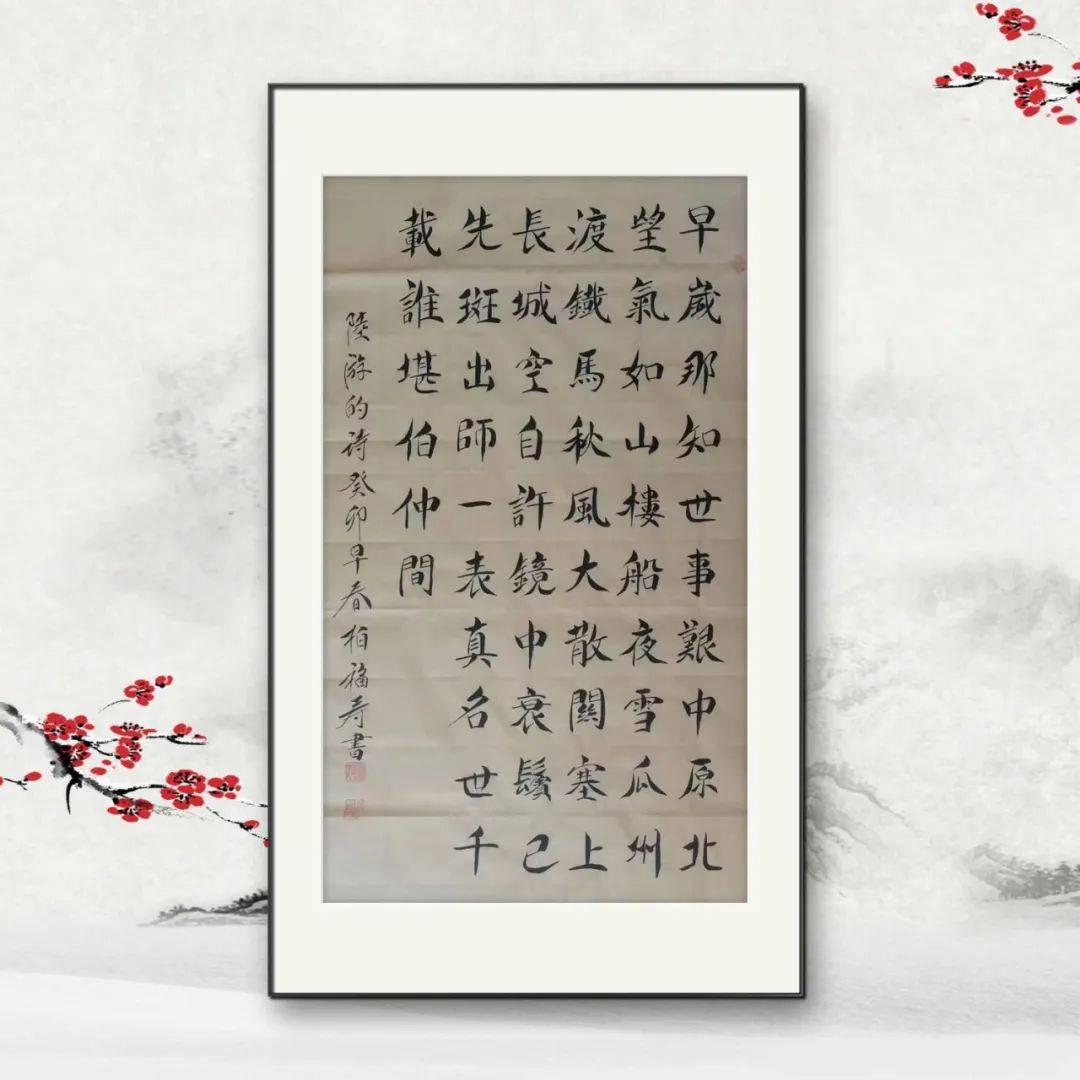 早歲那知世事艱中原北
望氣如山樓船夜雪瓜州
渡鐵馬秋風大散關塞上
長城空自許鏡中衰鬢已
先斑出師一表真名世千
載誰堪伯仲間
陸游的诗癸卯早春柏福寿書